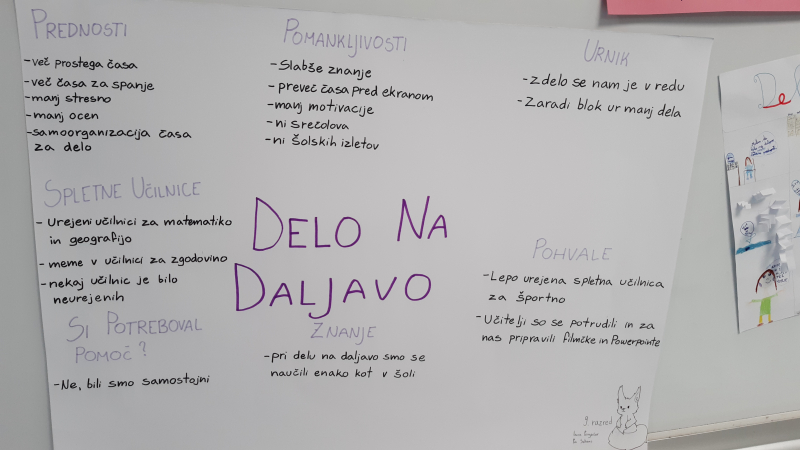 PREDNOSTI
-več prostega časa
-več časa za spanje
-manj stresno
-manj ocen
-samoorganizacija časa
za delo
POMANKLJIVOSTI
-Slabše znanje
-preveč časa pred ekranom
-manj motivacije
-ni srečolova
-ni šolskih izletov
URNIK
-Zdelo se nam je v redu
-Zaradi blok ur manj dela
SPLETNE UČILNICE
-Urejeni učilnici za matematiko
in geografijo
-meme v učilnici za zgodovino
-nekaj učilnic je bilo
neurejenih
DELO NA
DALJAVO
POHVALE
-Lepo urejena spletna učilnica
za športno
-Učitelji so se potrudili in za
nas pripravili filmčke in Powerpointe
SI POTREBOVAL
POMOČ?
-Ne, bili smo samostojni
ZNANJE
-pri delu na daljavo smo se
naučili enako kot v šoli
9. razred